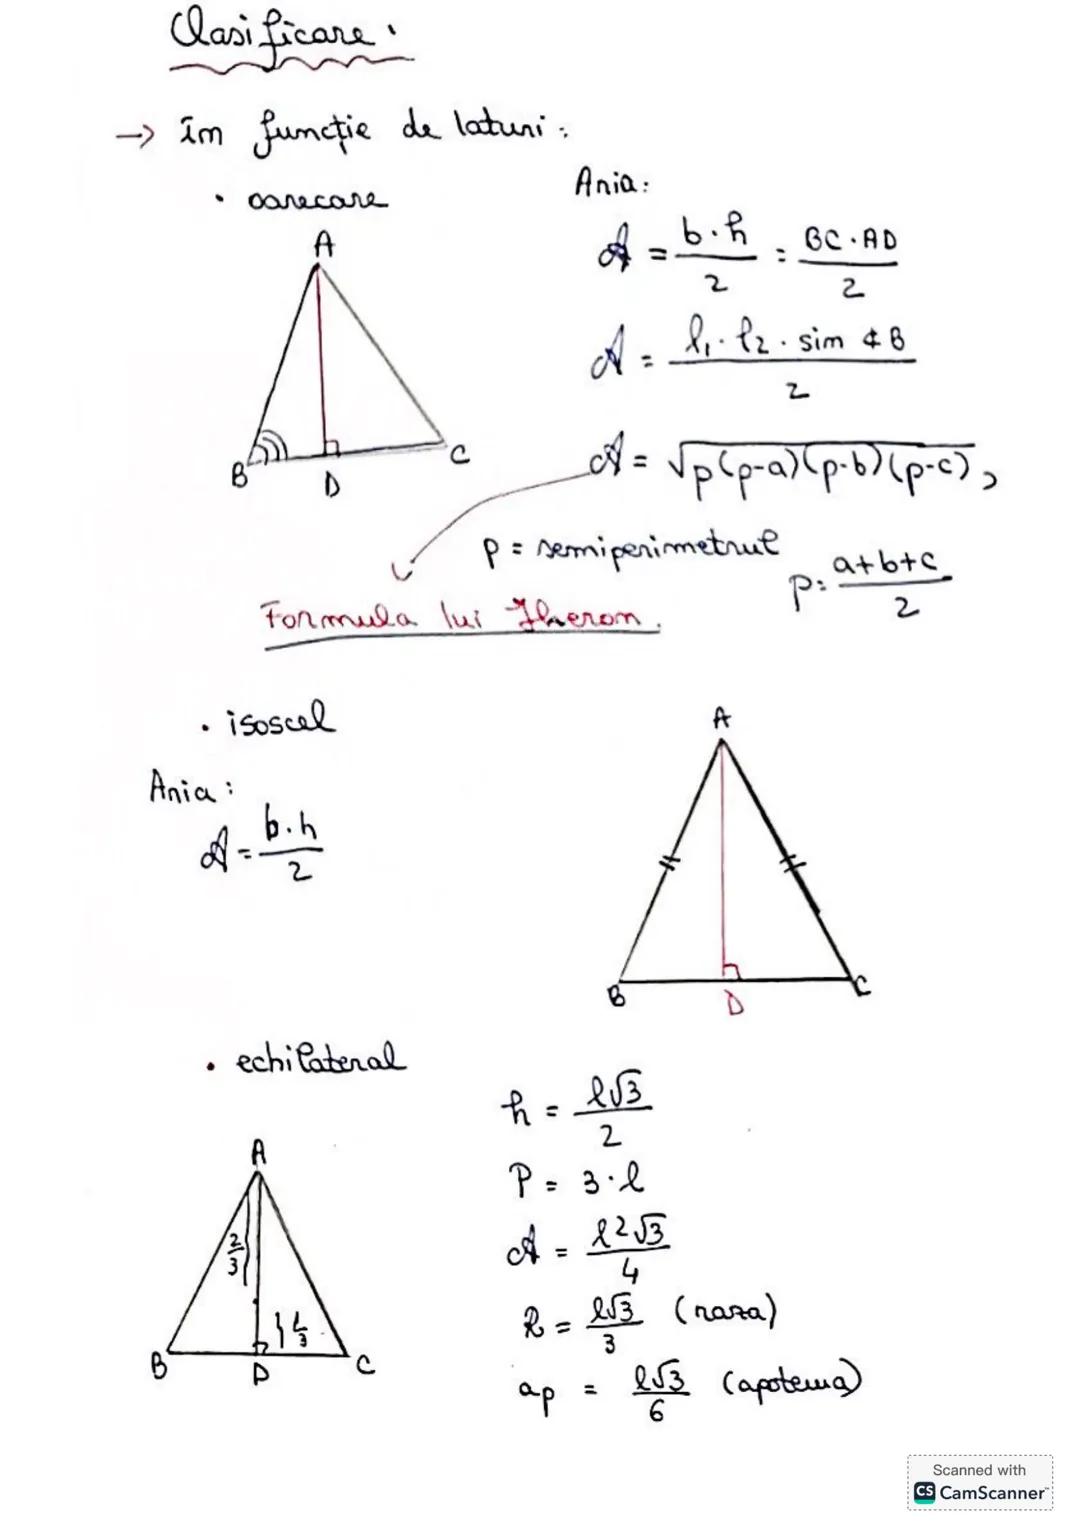 Clasificare:
→ în funcție de laturi:
• oarecare
Aria:
A = b·h/2 = BC·AD/2
A = l₁·l₂·sin ∢B/2
A = √p(p-a)(p-b)(p-c),
p = semiperimetrul
p = a+b+c/2
Formula lui Heron.
A
B
D
C
• isoscel
Aria:
A = b·h/2
A
B
D
C
• echilateral
h = l√3/2
P = 3·l
A = l²√3/4
R = l√3/3 (raza)
ap = l√3/6 (apotema)
A
2/3
1/3
B
D
C
Scanned with
CS CamScanner